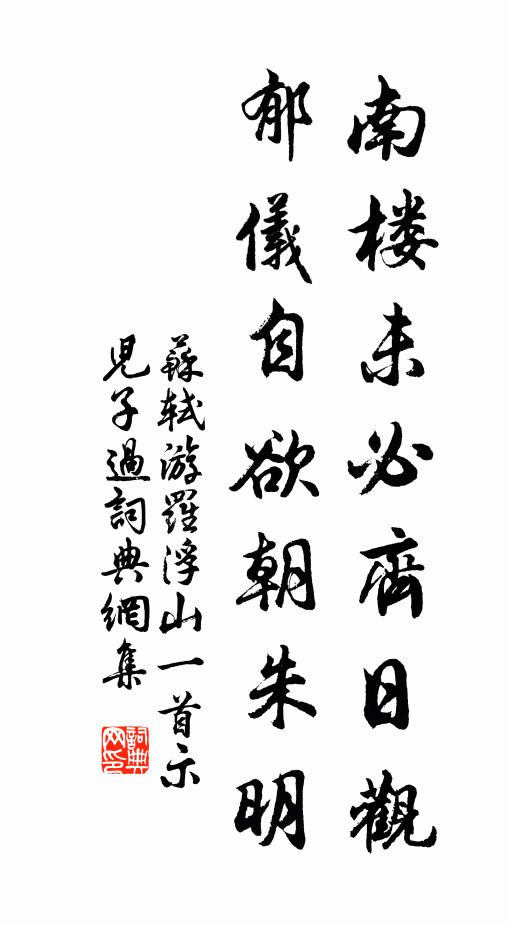 南楼未必齊日觀
郁儀自欲朝朱明
蘇軾游羅浮山一首示
兒子過詞典網集
詞典網印